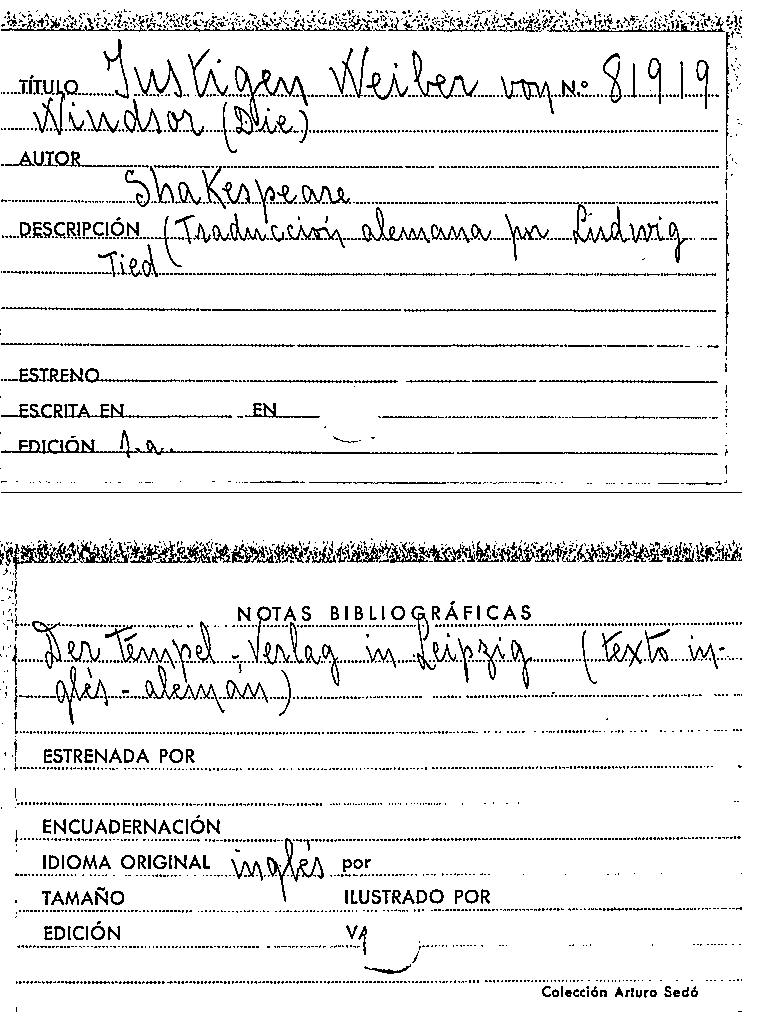 TÍTULO Iustigen Weiber von N.º 81919
Windsor (Die)
AUTOR
Shakespeare
DESCRIPCIÓN (Traducción alemana por Ludwig
Tied
ESTRENO
ESCRITA EN EN
EDICIÓN s.a.
NOTAS BIBLIOGRÁFICAS
Der Tempel-Verlag in Leipzig (texto in-
glés-alemán)
ESTRENADA POR
ENCUADERNACIÓN
IDIOMA ORIGINAL inglés por
TAMAÑO ILUSTRADO POR
EDICIÓN
Colección Arturo Sedó